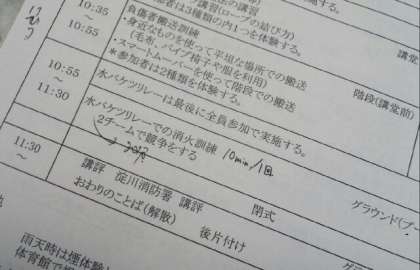 講習(ロープの結び方)
加者は3種類の内1つを体験する。
10:35
～
10:55
負傷者搬送訓練
・身近なものを使って平坦な場所での搬送
(毛布、パイプ椅子や服を利用)
・スマートムーバーを使って階段での搬送
*参加者は2種類を体験する。
階段(講堂前)
10:55
～
11:30
水バケツリレーは最後に全員参加で実施する。
水バケツリレーでの消火訓練 10min/1回
2チームで競争をする
グラウンド(プー
11:30
～
講評 淀川消防署 講評 閉式
おわりのことば(解散) 後片付け
雨天時は煙体験
体育館で